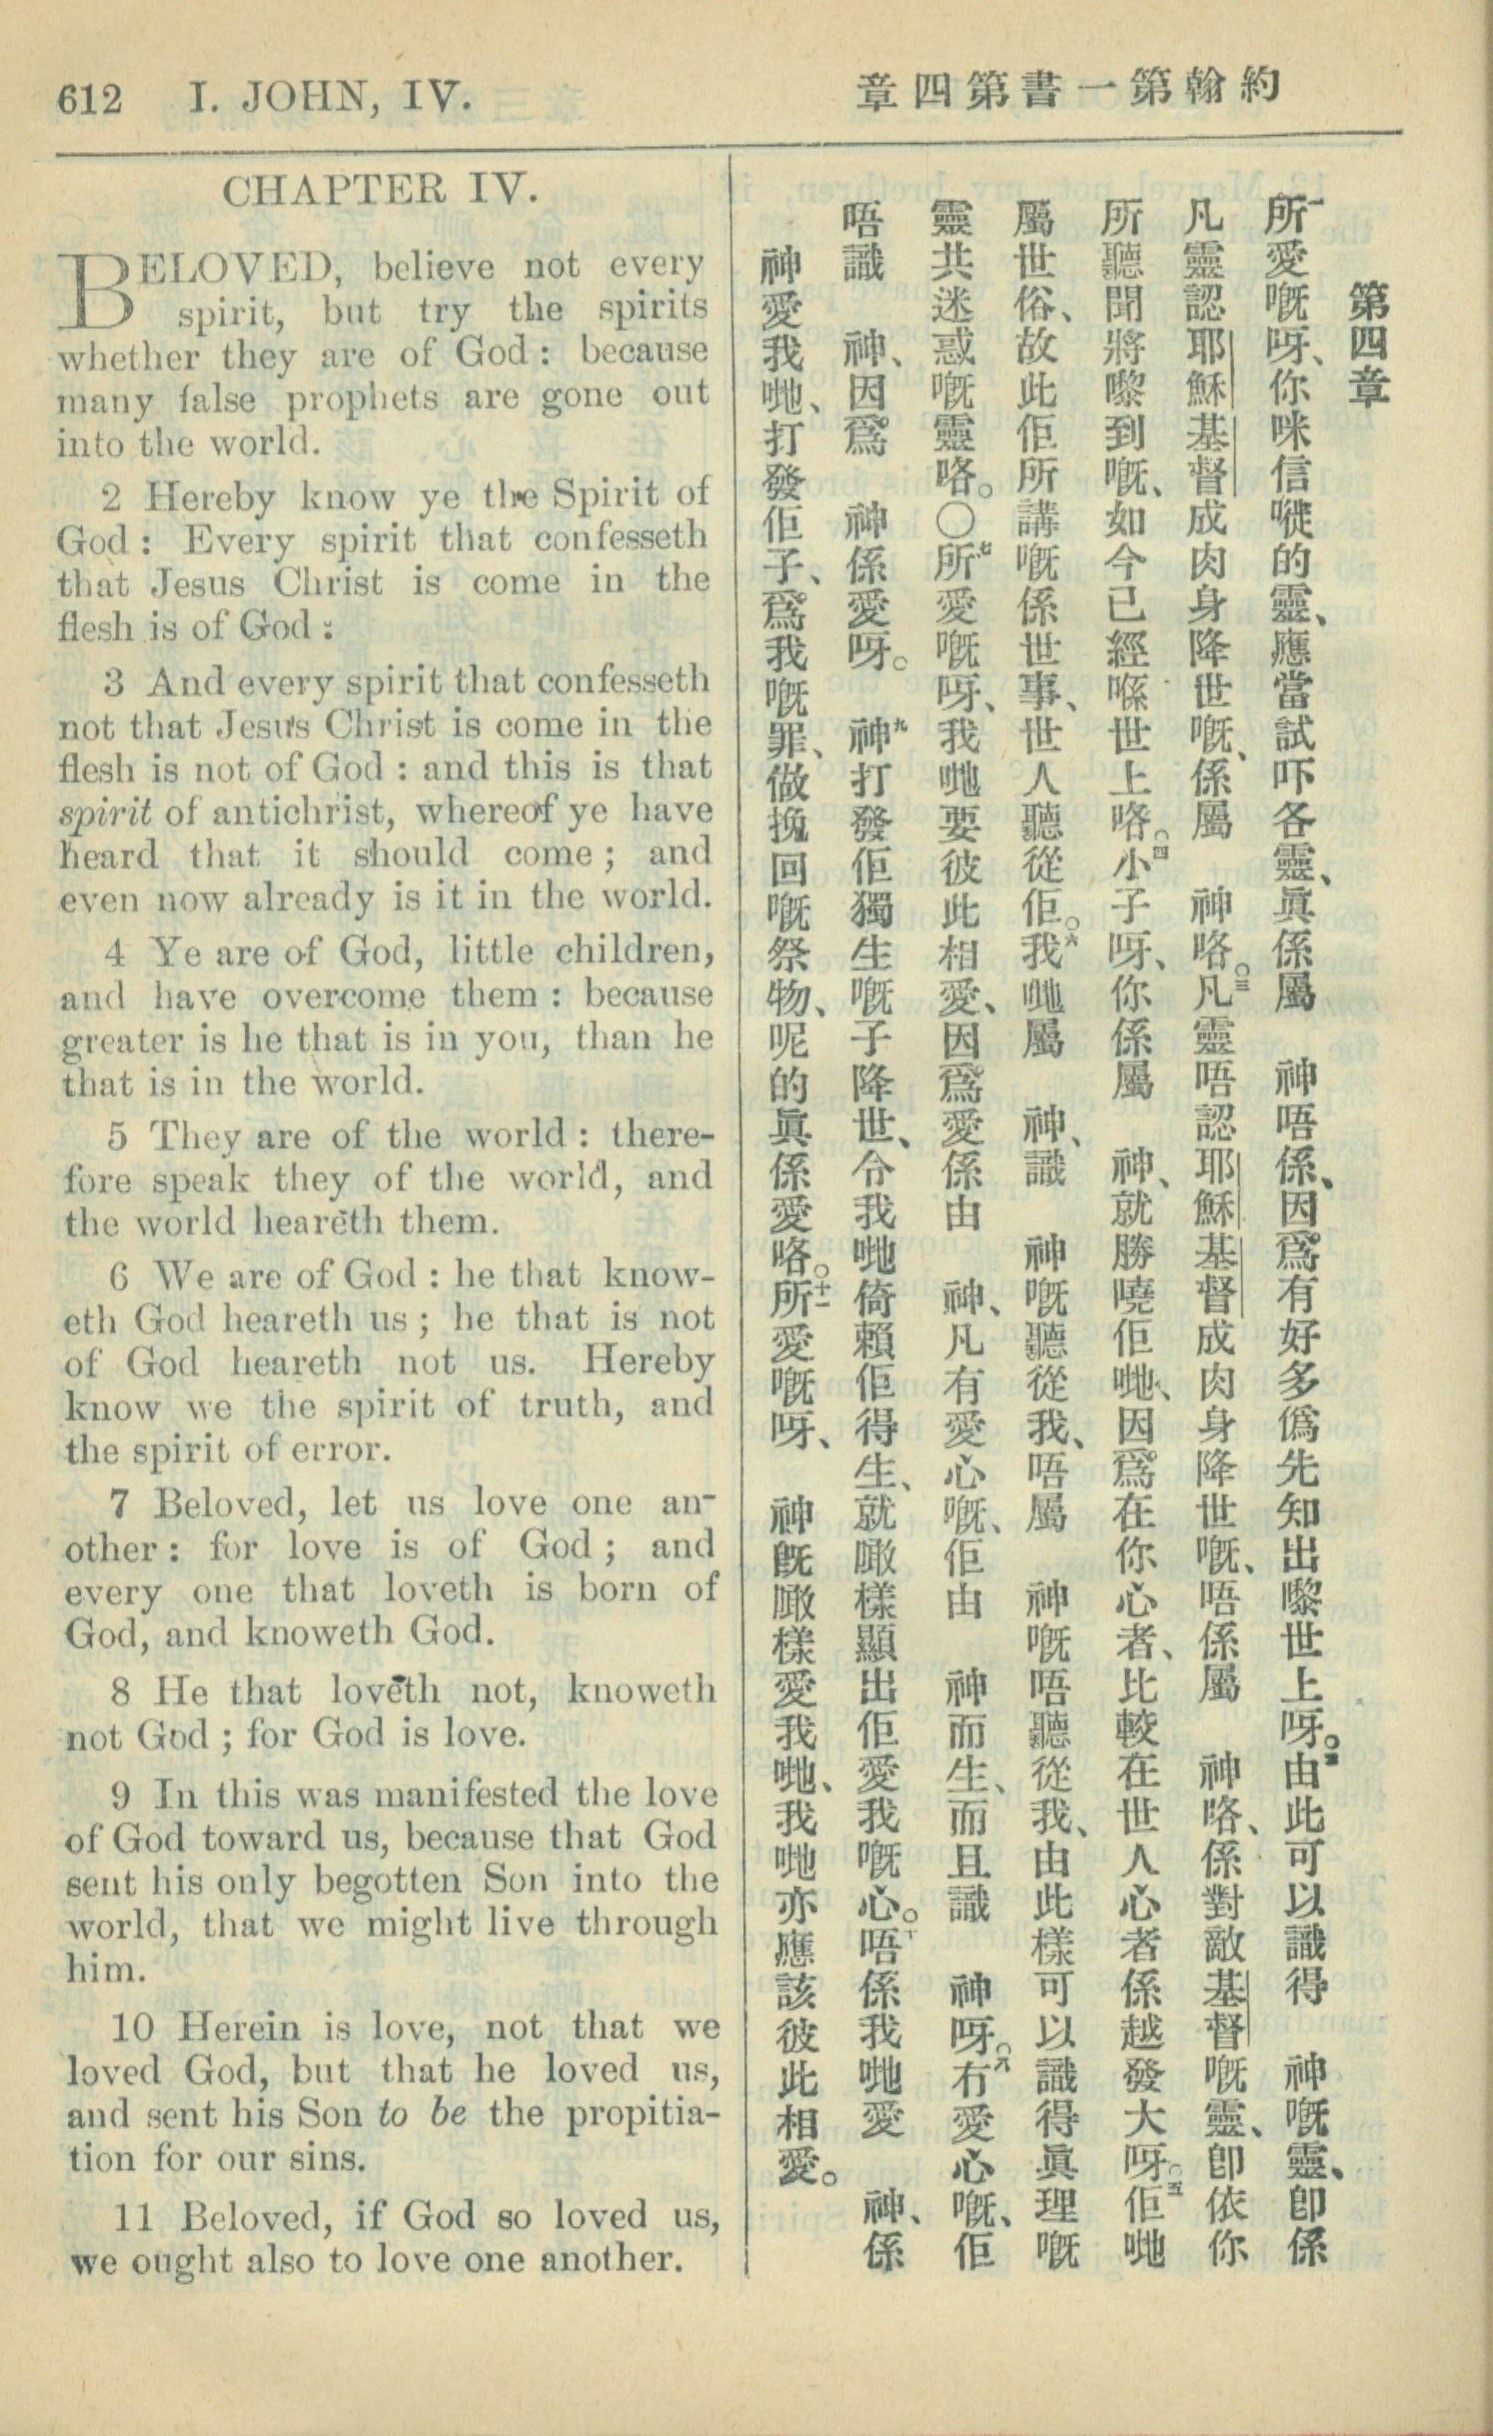 612 I. JOHN, IV.
章四第書一第翰約
CHAPTER IV.
BELOVED, believe not every
spirit, but try the spirits
whether they are of God: because
many false prophets are gone out
into the world.
2 Hereby know ye the Spirit of
God: Every spirit that confesseth
that Jesus Christ is come in the
flesh is of God:
3 And every spirit that confesseth
not that Jesus Christ is come in the
flesh is not of God: and this is that
spirit of antichrist, whereof ye have
heard that it should come; and
even now already is it in the world.
4 Ye are of God, little children,
and have overcome them: because
greater is he that is in you, than he
that is in the world.
5 They are of the world: there-
fore speak they of the world, and
the world heareth them.
6 We are of God: he that know-
eth God heareth us; he that is not
of God heareth not us. Hereby
know we the spirit of truth, and
the spirit of error.
7 Beloved, let us love one an-
other: for love is of God; and
every one that loveth is born of
God, and knoweth God.
8 He that loveth not, knoweth
not God; for God is love.
9 In this was manifested the love
of God toward us, because that God
sent his only begotten Son into the
world, that we might live through
him.
10 Herein is love, not that we
loved God, but that he loved us,
and sent his Son to be the propitia-
tion for our sins.
11 Beloved, if God so loved us,
we ought also to love one another.
第四章
一所愛嘅呀、你咪信嘥的靈、應當試吓各靈、眞係屬 神唔係、因爲有好多僞先知出嚟世上呀。二由此可以識得 神嘅靈、卽係
凡靈認耶穌基督成肉身降世嘅、係屬 神咯。三凡靈唔認耶穌基督成肉身降世嘅、唔係屬 神咯、係對敵基督嘅靈、卽依你
所聽聞將嚟到嘅、如今已經喺世上咯。四小子呀、你係屬 神、就勝曉佢哋、因爲在你心者、比較在世人心者係越發大呀。五佢哋
屬世俗、故此佢所講嘅係世事、世人聽從佢。六我哋屬 神、識 神嘅聽從我、唔屬 神嘅唔聽從我、由此樣可以識得眞理嘅
靈共迷惑嘅靈咯。〇七所愛嘅呀、我哋要彼此相愛、因爲愛係由 神、凡有愛心嘅、佢由 神而生、而且識 神呀。八冇愛心嘅、佢
唔識 神、因爲 神係愛呀。九神打發佢獨生嘅子降世、令我哋倚賴佢得生、就噉樣顯出佢愛我嘅心。十唔係我哋愛 神、係
神愛我哋、打發佢子、爲我嘅罪、做挽回嘅祭物、呢的眞係愛咯。十一所愛嘅呀、 神旣噉樣愛我哋、我哋亦應該彼此相愛。